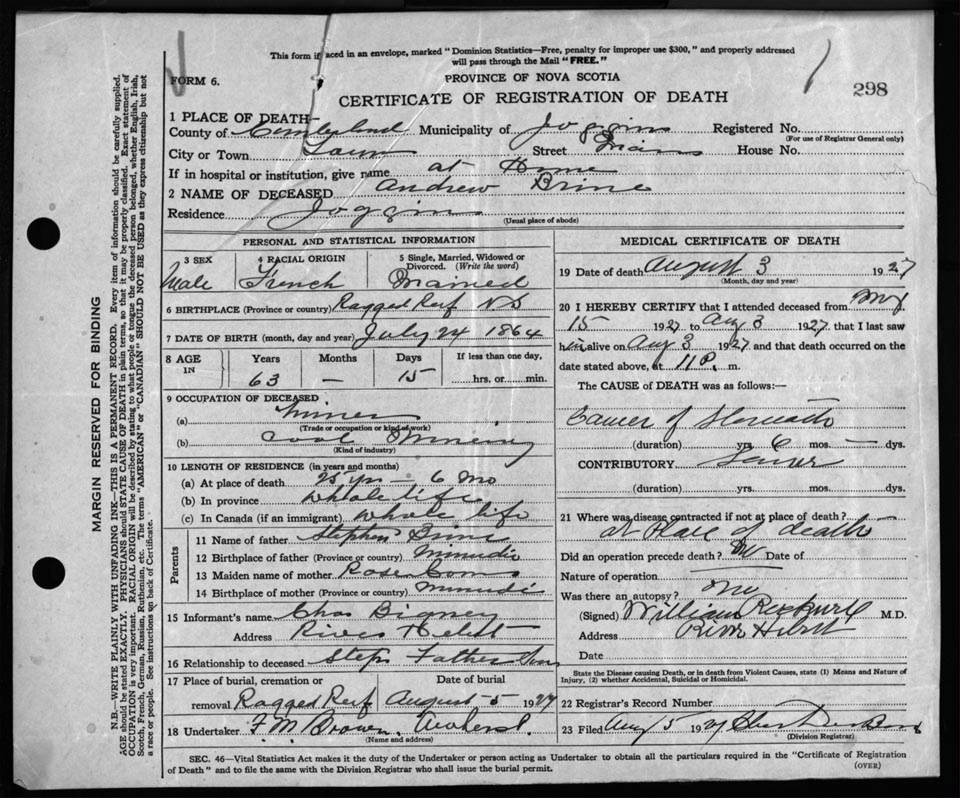 This form if placed in an envelope, marked "Dominion Statistics—Free, penalty for improper use $300," and properly addressed
will pass through the Mail "FREE."
FORM 6.
PROVINCE OF NOVA SCOTIA
298
CERTIFICATE OF REGISTRATION OF DEATH
1 PLACE OF DEATH—
County of Cumberland Municipality of Joggins Registered No.
(For use of Registrar General only)
City or Town Town Street Main House No.
If in hospital or institution, give name at Home
2 NAME OF DECEASED Andrew Brine
Residence Joggins
(Usual place of abode)
PERSONAL AND STATISTICAL INFORMATION
3 SEX 4 RACIAL ORIGIN 5 Single, Married, Widowed or
Divorced. (Write the word)
Male French Married
6 BIRTHPLACE (Province or country) Ragged Reef N.S
7 DATE OF BIRTH (month, day and year) July 24 1864
8 AGE IN Years Months Days If less than one day,
63 — 15 hrs. or min.
9 OCCUPATION OF DECEASED
(a) Miner
(Trade or occupation or kind of work)
(b) Coal Mining
(Kind of industry)
10 LENGTH OF RESIDENCE (in years and months)
(a) At place of death 25 yrs — 6 mo
(b) In province whole life
(c) In Canada (if an immigrant) whole life
Parents
11 Name of father Stephen Brine
12 Birthplace of father (Province or country) Minudie
13 Maiden name of mother Rose
14 Birthplace of mother (Province or country) Minudie
15 Informant's name Chas Bigney
Address River Hebert
16 Relationship to deceased Step Father
17 Place of burial, cremation or Date of burial
removal Ragged Reef August 5 1927
18 Undertaker F. M. Brown
(Name and address)
MEDICAL CERTIFICATE OF DEATH
19 Date of death August 3 1927
(Month, day and year)
20 I HEREBY CERTIFY that I attended deceased from May
15 1927 to Aug 3 1927, that I last saw
him alive on Aug 3 1927 and that death occurred on the
date stated above, at 11 P. m.
The CAUSE OF DEATH was as follows:—
Cancer of Stomach
(duration) yrs. 6 mos. — dys.
CONTRIBUTORY
(duration) yrs. mos. dys.
21 Where was disease contracted if not at place of death?
at Place of death
Did an operation precede death? No Date of
Nature of operation
Was there an autopsy? no
(Signed) William Rockwell M.D.
Address River Hebert
Date
State the Disease causing Death, or in death from Violent Causes, state (1) Means and Nature of
Injury, (2) whether Accidental, Suicidal or Homicidal.
22 Registrar's Record Number
23 Filed Aug 5 1927
(Division Registrar)
SEC. 46—Vital Statistics Act makes it the duty of the Undertaker or person acting as Undertaker to obtain all the particulars required in the "Certificate of Registration
of Death" and to file the same with the Division Registrar who shall issue the burial permit.
(OVER)
MARGIN RESERVED FOR BINDING
N.B.—WRITE PLAINLY WITH UNFADING INK—THIS IS A PERMANENT RECORD. Every item of information should be carefully supplied.
AGE should be stated EXACTLY. PHYSICIANS should STATE CAUSE OF DEATH in plain terms, so that it may be properly classified. Exact statement of
OCCUPATION is very important. RACIAL ORIGIN will be described by stating to what people or tongue the deceased person belonged, whether English, Irish,
Scotch, French, German, Russian, Ruthenian, etc. The terms "AMERICAN" or "CANADIAN" SHOULD NOT BE USED as they express citizenship but not
a race or people. See instructions on back of Certificate.